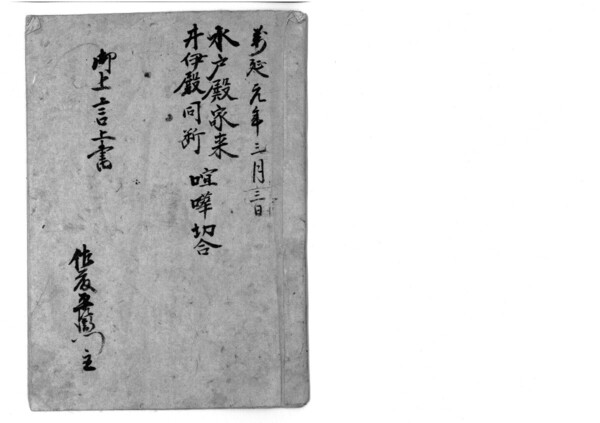 萬延元年三月三日
水戸殿家来
井伊殿同断 喧嘩切合
御上言上書
佐友 主